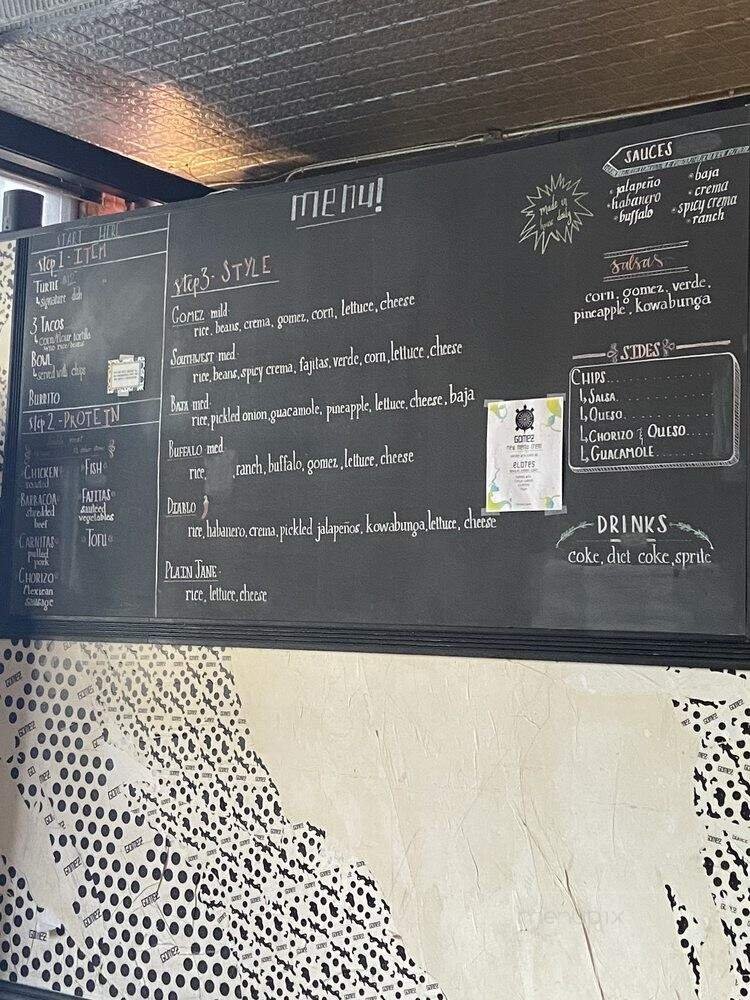 menu!
START HERE
step 1 - ITEM
TURTLE
↳signature dish
3 TACOS
↳corn/flour tortilla
BOWL
↳served with chips
BURRITO
step 2 - PROTEIN
CHICKEN
roasted
BARBACOA
shredded
beef
CARNITAS
pulled
pork
CHORIZO
Mexican
sausage
FISH
FAJITAS
sauteed
vegetables
TOFU
step 3 - STYLE
GOMEZ mild
rice, beans, crema, gomez, corn, lettuce, cheese
SOUTHWEST med.
rice, beans, spicy crema, fajitas, verde, corn, lettuce, cheese
BAJA med.
rice, pickled onion, guacamole, pineapple, lettuce, cheese, baja
BUFFALO med.
rice, ranch, buffalo, gomez, lettuce, cheese
DIABLO
rice, habanero, crema, pickled jalapeños, kowabunga, lettuce, cheese
PLAIN JANE
rice, lettuce, cheese
made in
house daily
GOMEZ
new menu item
ELOTES
SAUCES
• jalapeño
• habanero
• buffalo
• baja
• crema
• spicy crema
• ranch
salsas
corn, gomez, verde,
pineapple, kowabunga
SIDES
CHIPS
↳SALSA
↳QUESO
↳CHORIZO & QUESO
↳GUACAMOLE
DRINKS
coke, diet coke, sprite